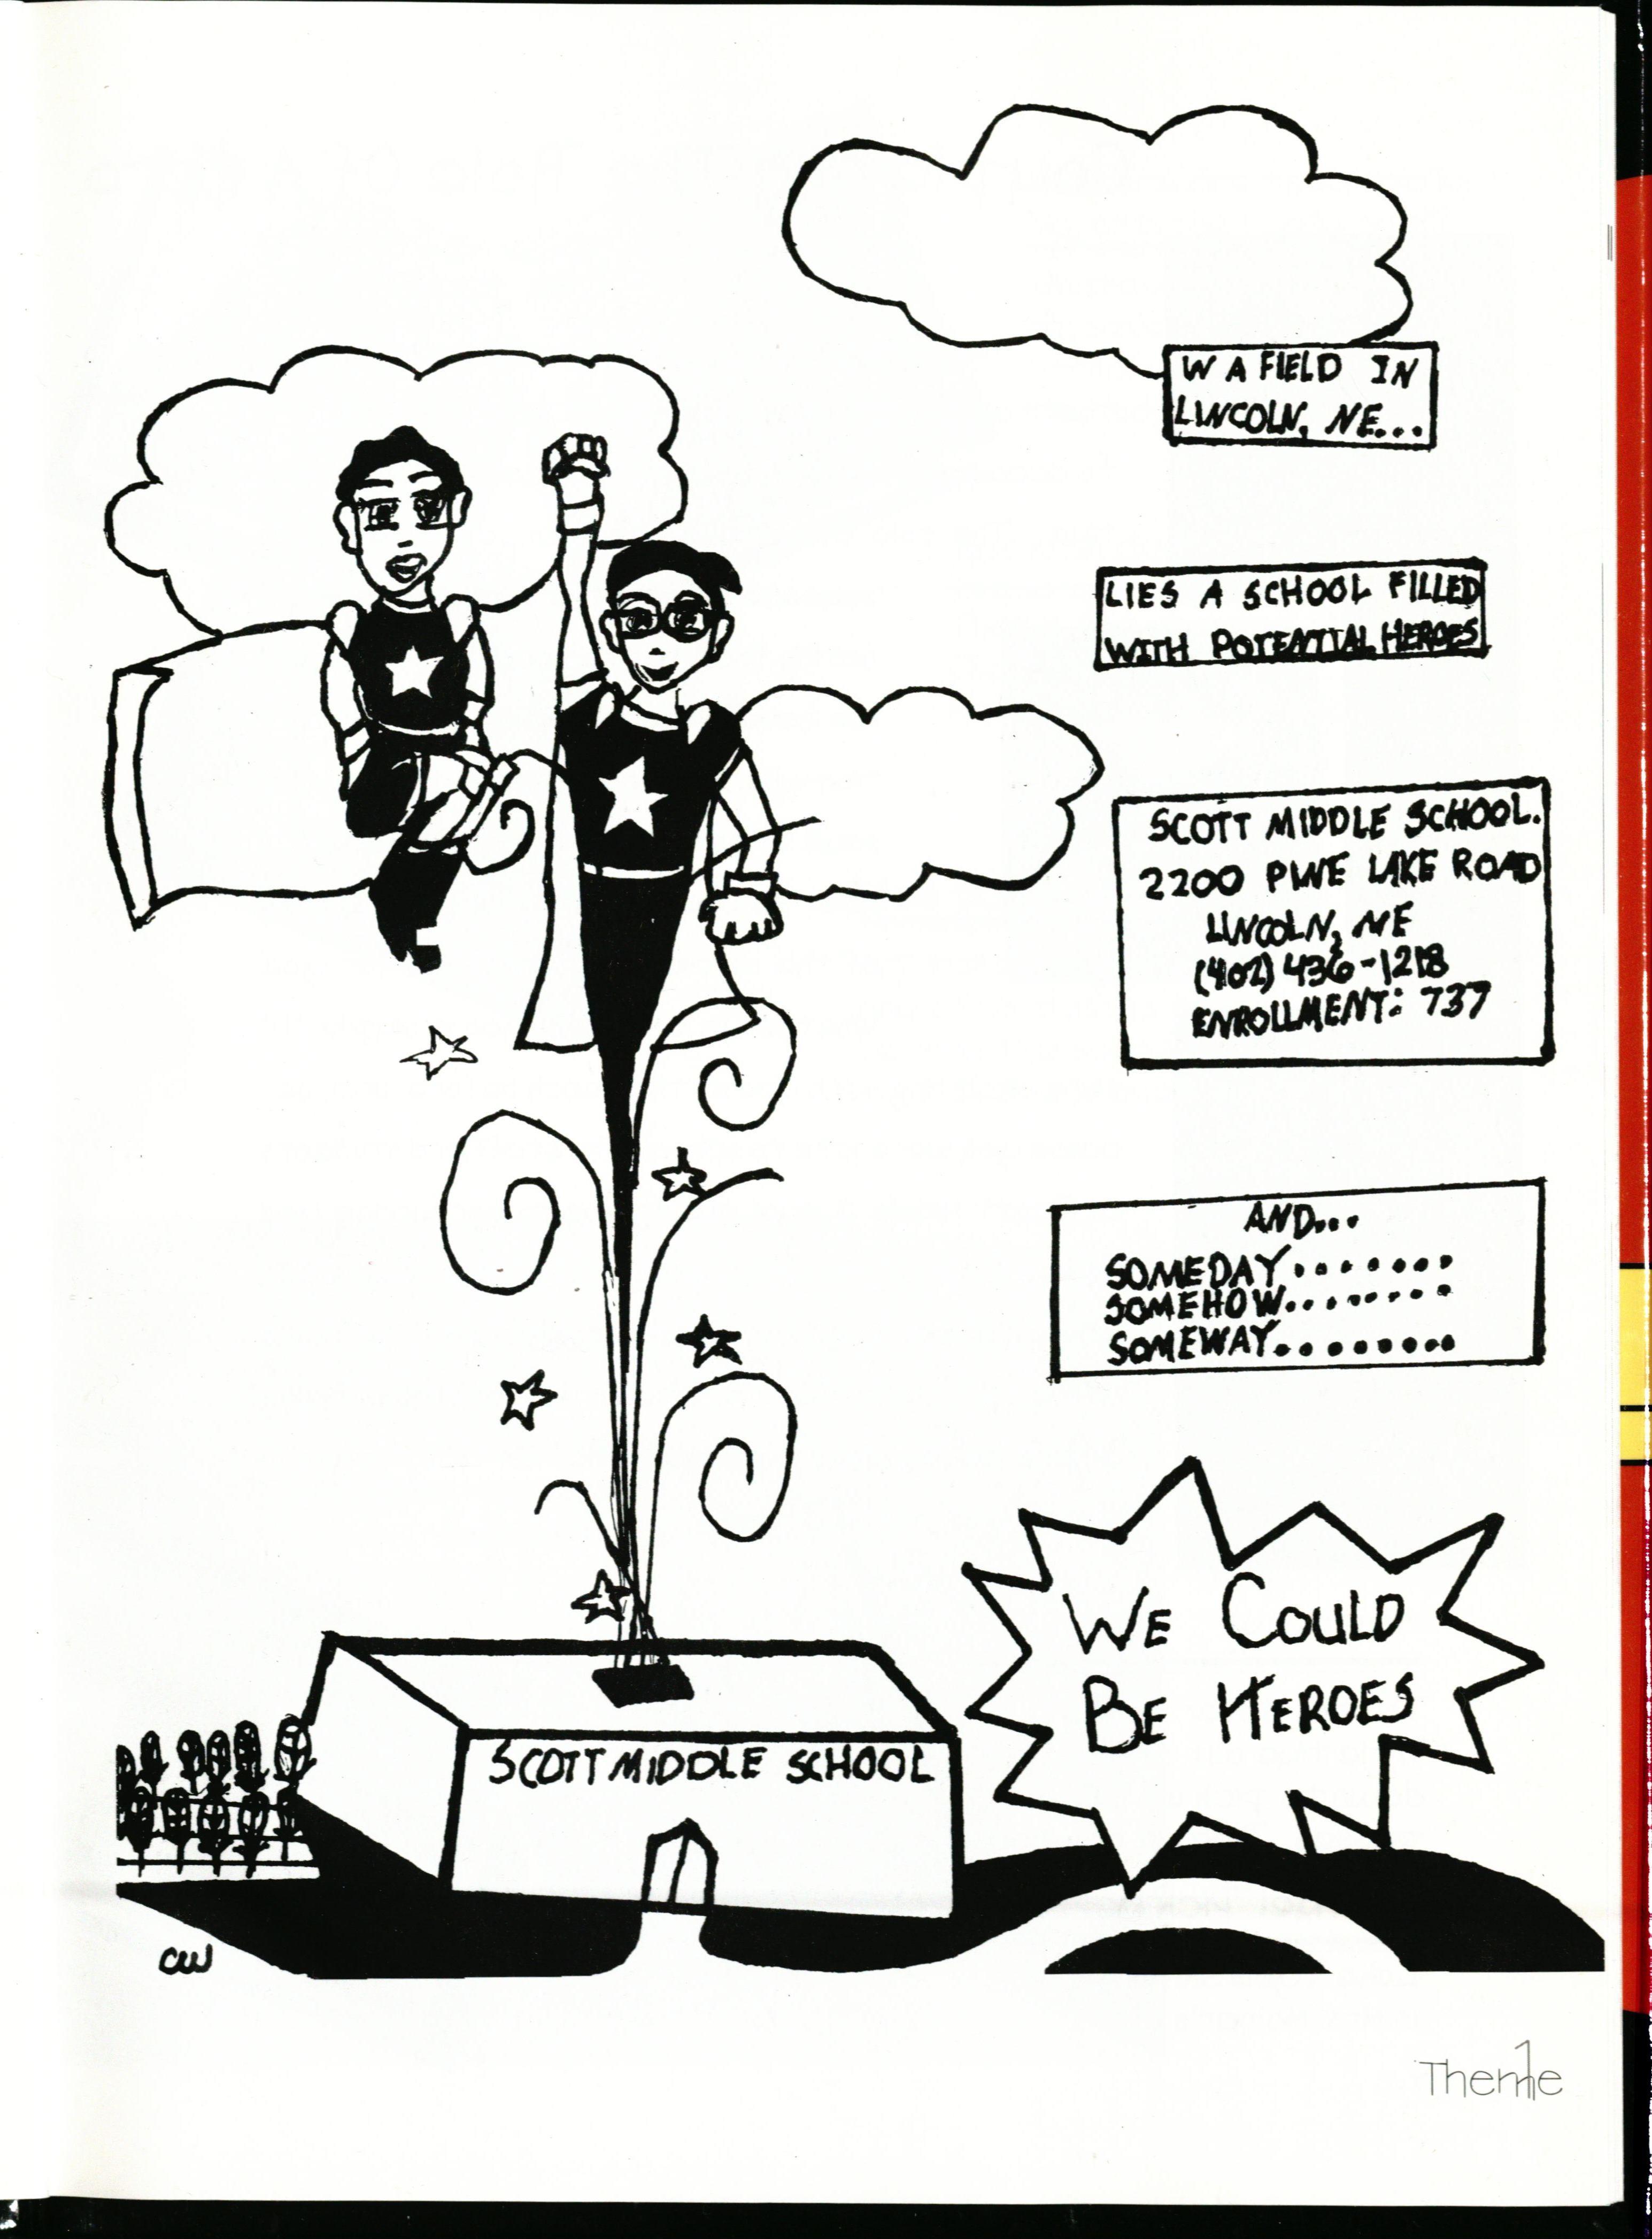 W A FIELD IN
LINCOLN, NE...
LIES A SCHOOL FILLED
WITH POTENTIAL HEROES
SCOTT MIDDLE SCHOOL.
2200 PINE LAKE ROAD
LINCOLN, NE
(402) 436-1218
ENROLLMENT: 737
AND...
SOMEDAY.......
SOMEHOW........
SOMEWAY.........
WE COULD
BE HEROES
SCOTT MIDDLE SCHOOL
CW
Theme
1